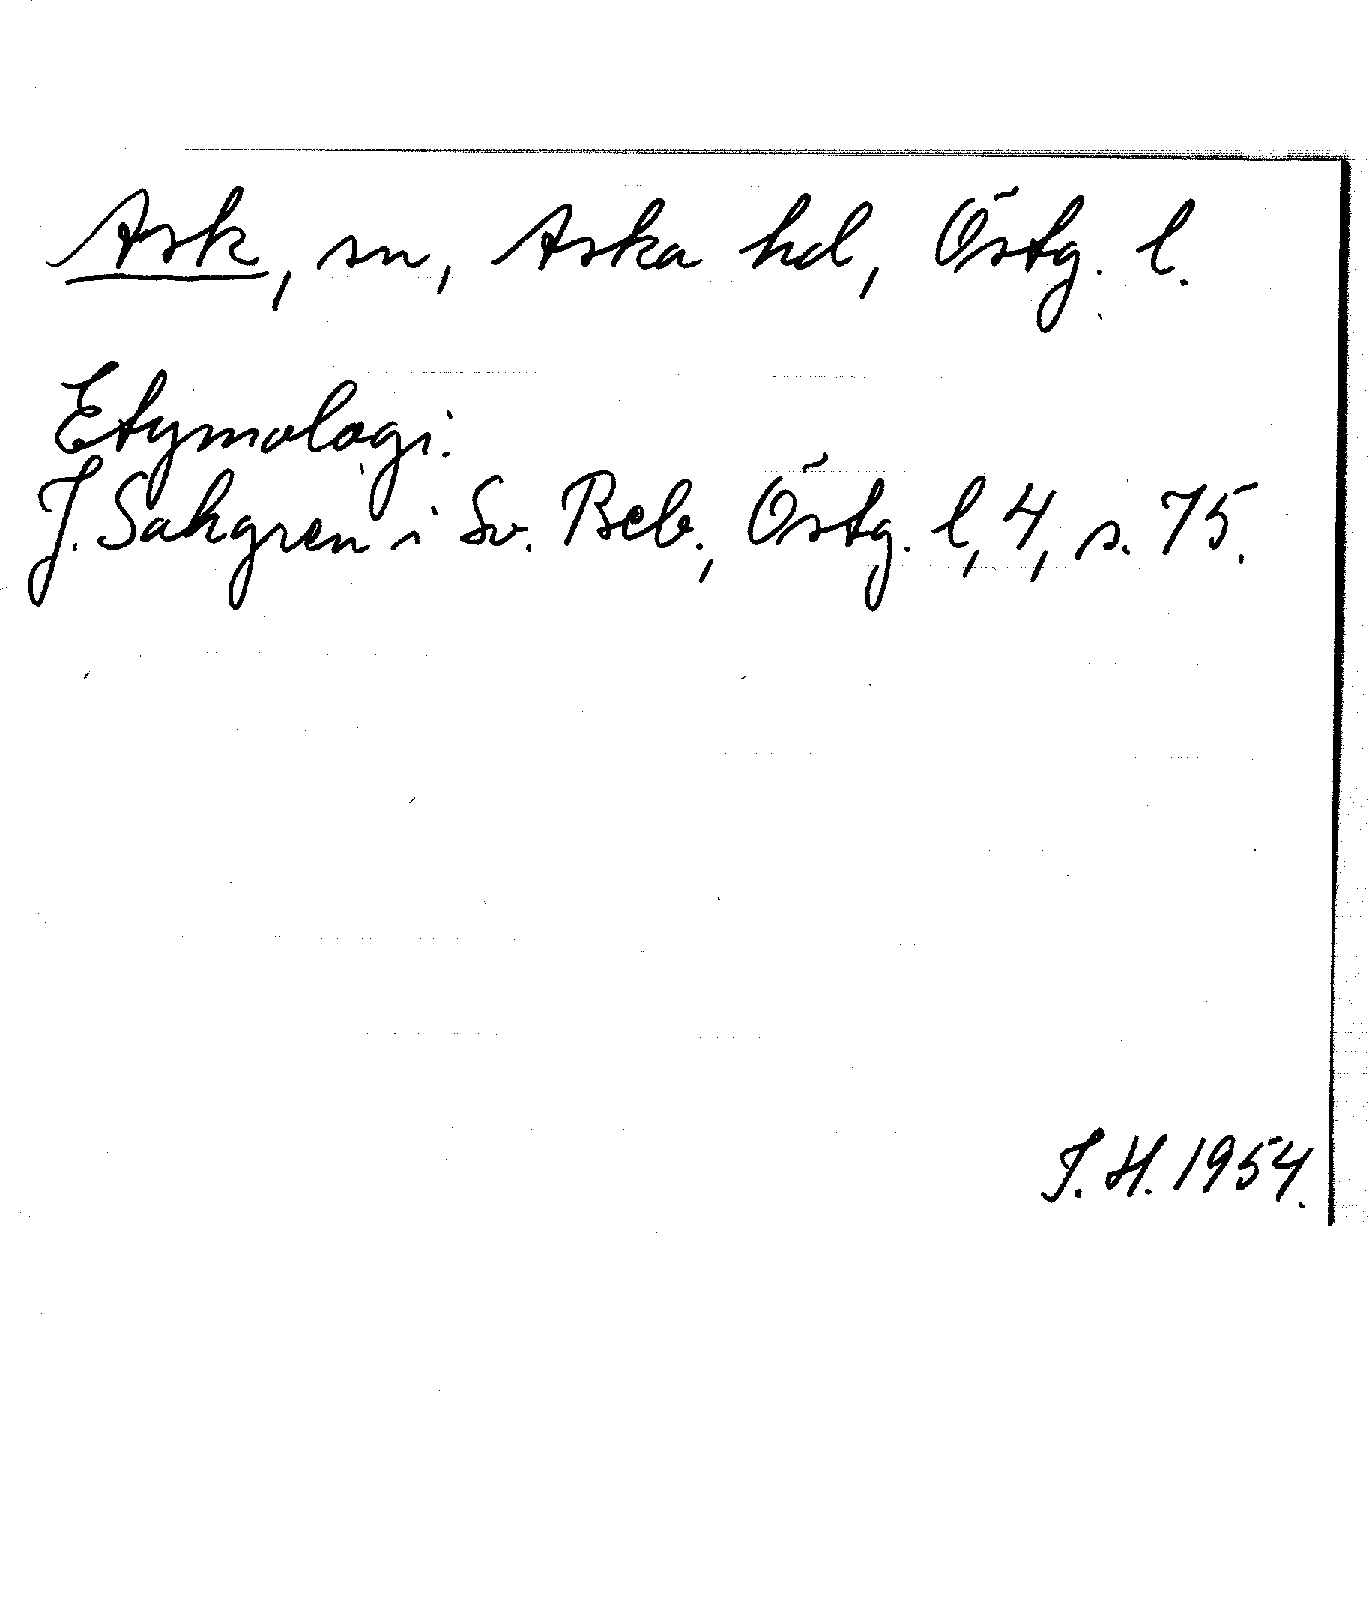 Ask, sn, Aska hd, Östg. l.
Etymologi.
J. Sahgren i Sv. Beb., Östg. l, 4, s. 75.
I. H. 1954.